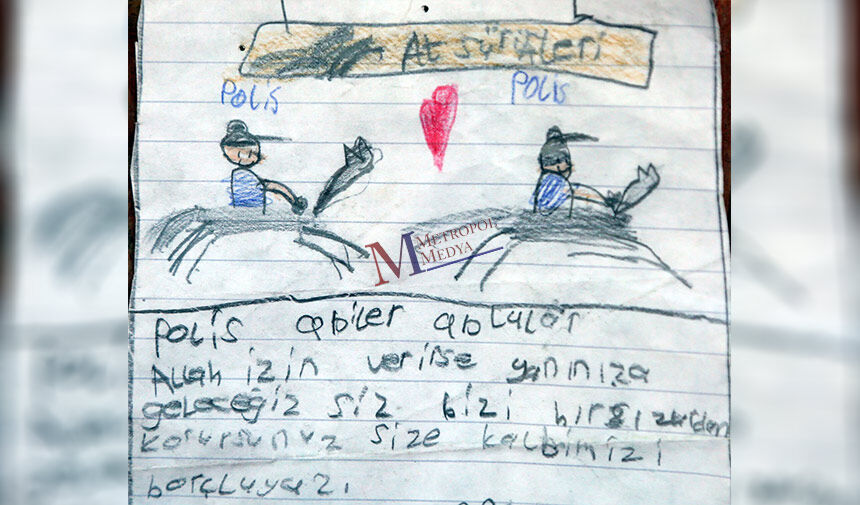 At sürüşleri
POLİS POLİS
METROPOL
MEDYA
POLİS abiler ablalar
ALLah izin verirse yanınıza
geleceğiz siz bizi hırsızlardan
korursunuz size kalbimizi
borçluyazı